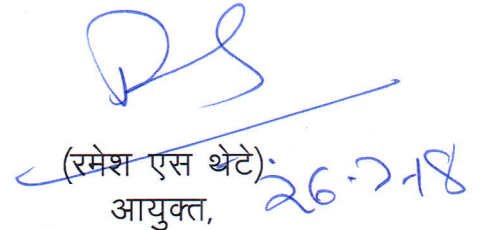 (रमेश एस थेटे)
आयुक्त,
26-7-18